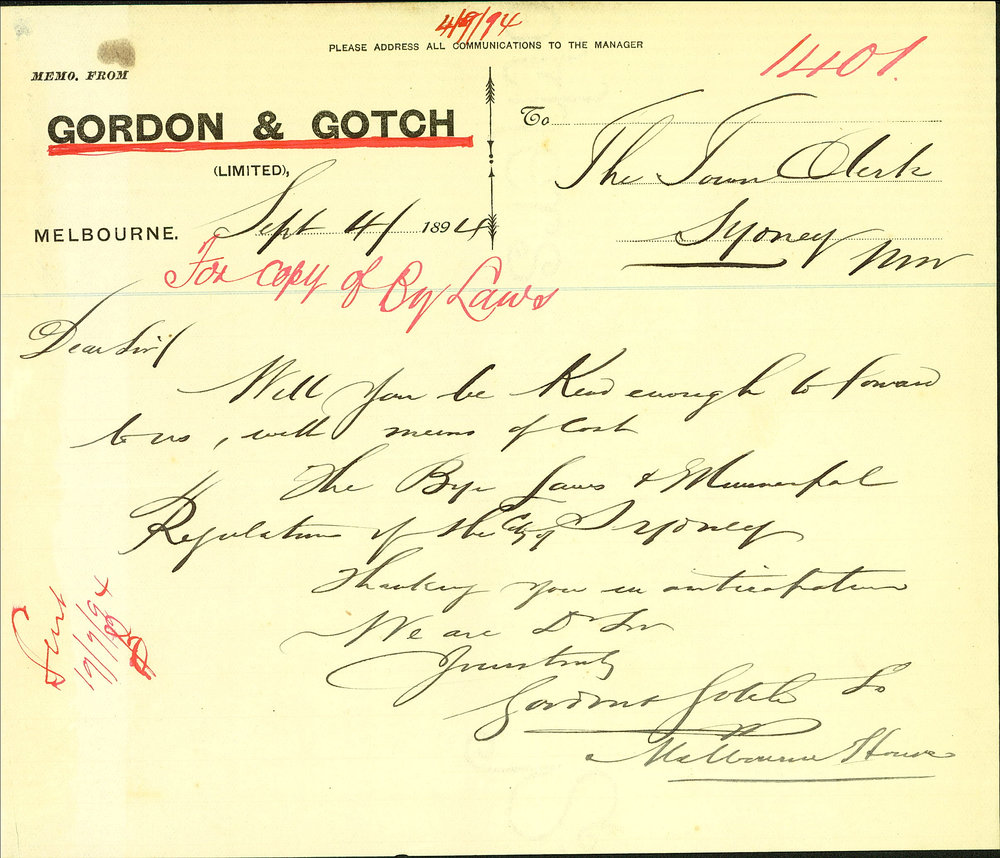 4/9/94
PLEASE ADDRESS ALL COMMUNICATIONS TO THE MANAGER
1401.
MEMO. FROM
GORDON & GOTCH
(LIMITED),
MELBOURNE. Sept 4/ 1894
To
The Town Clerk
Sydney NSW
For copy of By Laws
Dear Sir/
Will you be Kind enough to forward
to us, with memo of Cost
The Bye Laws & Municipal
Regulations of the City of Sydney
Thanking you in anticipation
We are D Sir
Yours truly
Gordon & Gotch Ld
Melbourne House
Sent